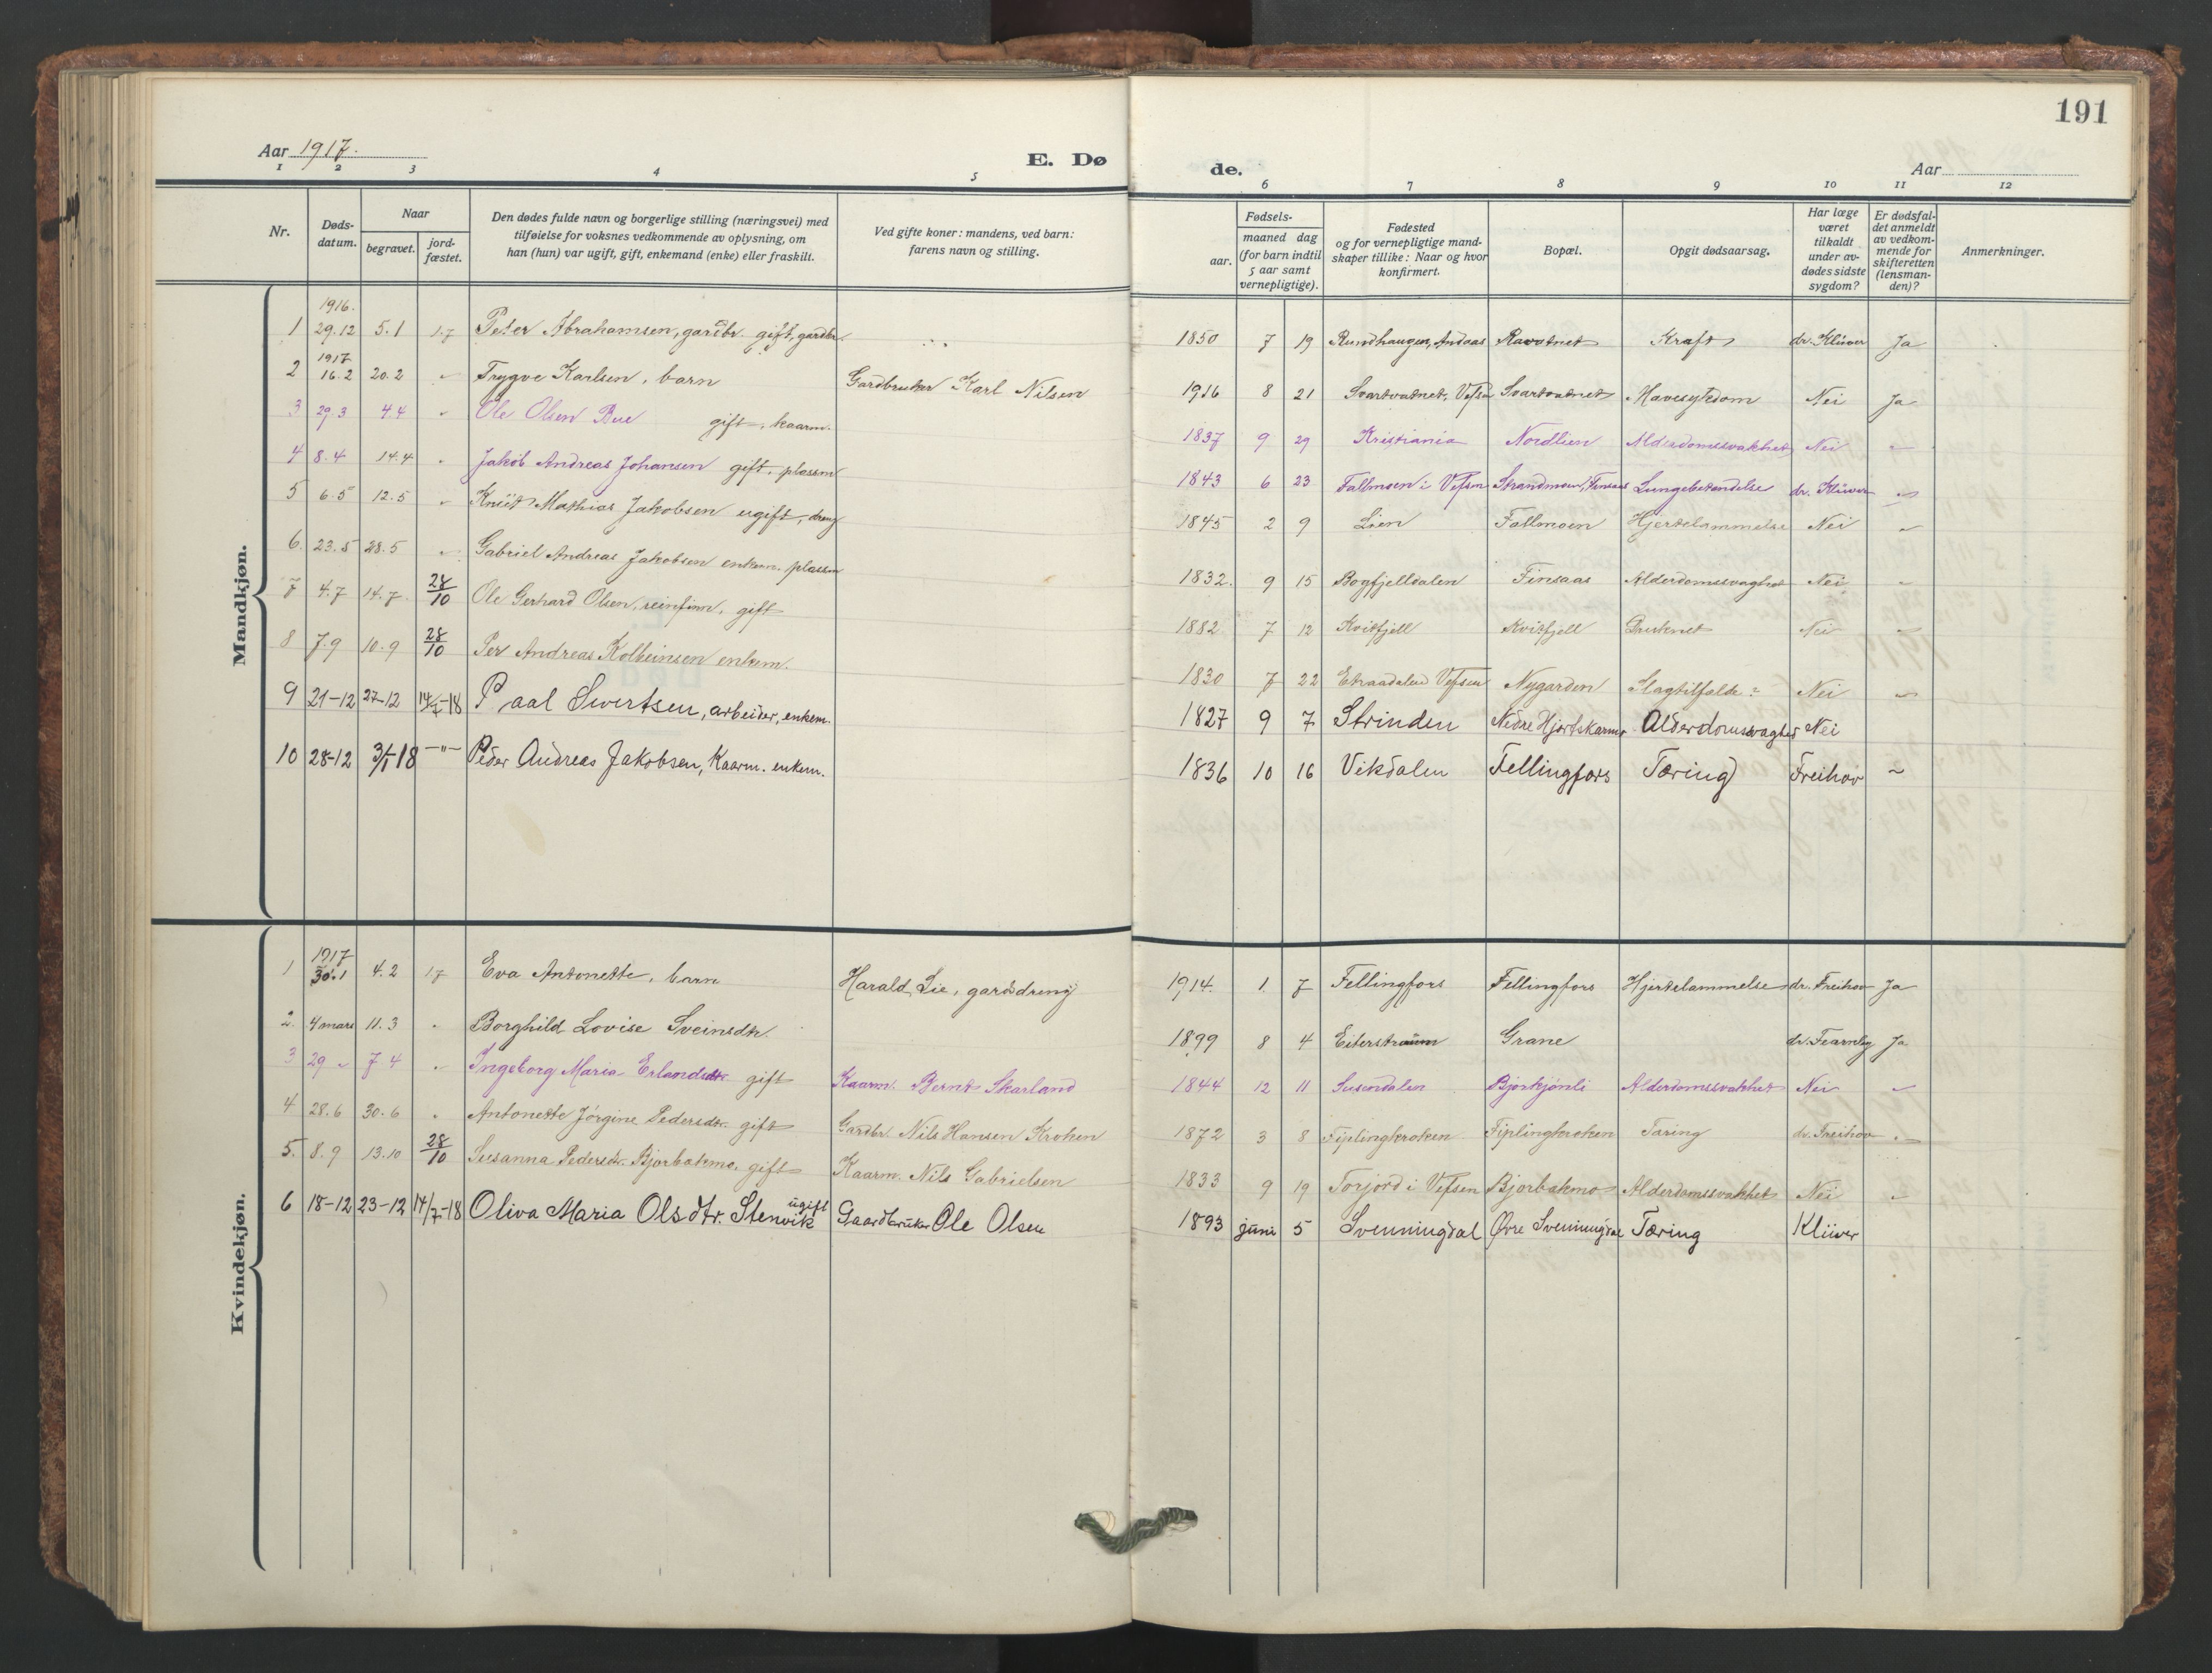 191
Aar 1917.
E. Dø
de.
Aar
1 2 3 4 5 6 7 8 9 10 11 12
Nr.
Døds-
datum.
Naar
begravet.
jord-
fæstet.
Den dødes fulde navn og borgerlige stilling (næringsvei) med
tilføielse for voksnes vedkommende av oplysning, om
han (hun) var ugift, gift, enkemand (enke) eller fraskilt.
Ved gifte koner: mandens, ved barn:
farens navn og stilling.
Fødsels-
aar.
maaned dag
(for barn indtil
5 aar samt
vernepligtige).
Fødested
og for vernepligtige mand-
skaper tillike: Naar og hvor
konfirmert.
Bopæl.
Opgit dødsaarsag.
Har læge
været
tilkaldt
under av-
dødes sidste
sygdom?
Er dødsfal-
det anmeldt
av vedkom-
mende for
skifteretten
(lensman-
den)?
Anmerkninger.
Mandkjøn.
1916.
1 29.12 5.1 1.7 Peter Abrahamsen, gardbr. gift, gardbr. 1850 7 19 Rundhaugen, Kraft dr. Klüver Ja
1917
2 16.2 20.2 " Trygve Karlsen, barn Gardbruker Karl Nilsen 1916 8 21 Svartvatnet, Vefsn Svartvatnet Mavesykdom Nei Ja
3 29.3 4.4 " Ole Olsen Bue gift, kaarm. 1837 9 29 Kristiania Nordlien Alderdomssvakhet Nei "
4 8.4 14.4 " Jakob Andreas Johansen gift, plassm 1843 6 23 Fallmoen i Vefsn Strandmoen, Finsaas Lungebetendelse dr. Klüver "
5 6.5 12.5 " Knut Mathias Jakobsen ugift, dreng 1845 2 9 Lien Fallmoen Hjertelammelse Nei "
6. 23.5 28.5 " Gabriel Andreas Jakobsen enkem. plassm 1832. 9 15 Boyfjelldalen Finsaas Alderdomssvaghet Nei "
7 4.7 14.7. 28/10 Ole Gerhard Olsen, reinfinn, gift 1882 7 12 Kvitfjell Kvitfjell Druknet Nei "
8 7.9 10.9 28/10 Per Andreas Kolbeinsen enkem. 1830 7 22 Vefsen Nygarden Slagtilfælde Nei "
9 21-12 27-12 Paal Sivertsen, arbeider, enkem. 1827 9 7 Strinden Nedre Hjortskarmo Alderdomssvaghed Nei
10 28-12 3/1 18 -"- Peder Andreas Jakobsen, Kaarm. enkem. 1836 10 16 Vikdalen Fellingfors Tæring Freihov "
Kvindekjøn.
1917
1 30.1 4.2 1.7 Eva Antonette, barn Harald Lie, gardsdreng 1914. 1. 7 Fellingfors Fellingfors Hjertelammelse dr. Freihov Ja
2. 4 mars 11.3 " Borghild Lovise Sveinsdtr. 1899 8 4 Eiterstraum Grane dr. Fearnley Ja
3 29 " 7 4 " Ingeborg Maria Erlandsdtr. gift Kaarm. Bernt Skarland 1844 12 11 Susendalen Bjorkjønli Alderdomssvakhet Nei "
4 28.6 30.6 " Antonette Jørgine Pedersdtr. gift Gardbr. Nils Hansen Kroken 1872 3 8 Fiplingkroken Fiplingkroken Tæring dr. Freihov "
5. 8.9 13.10 28/10 Susanna Pedersdtr. Bjorbækmo. gift Kaarm. Nils Gabrielsen 1833 9 19 Torjord i Vefsen Bjorbækmo Alderdomssvakhet Nei "
6 18-12 23-12 14/7-18 Oliva Maria Olsdtr. Stenvik ugift Gaardbruker Ole Olsen 1893 juni 5 Svenningdal Øvre Svenningdal Tæring Klüver